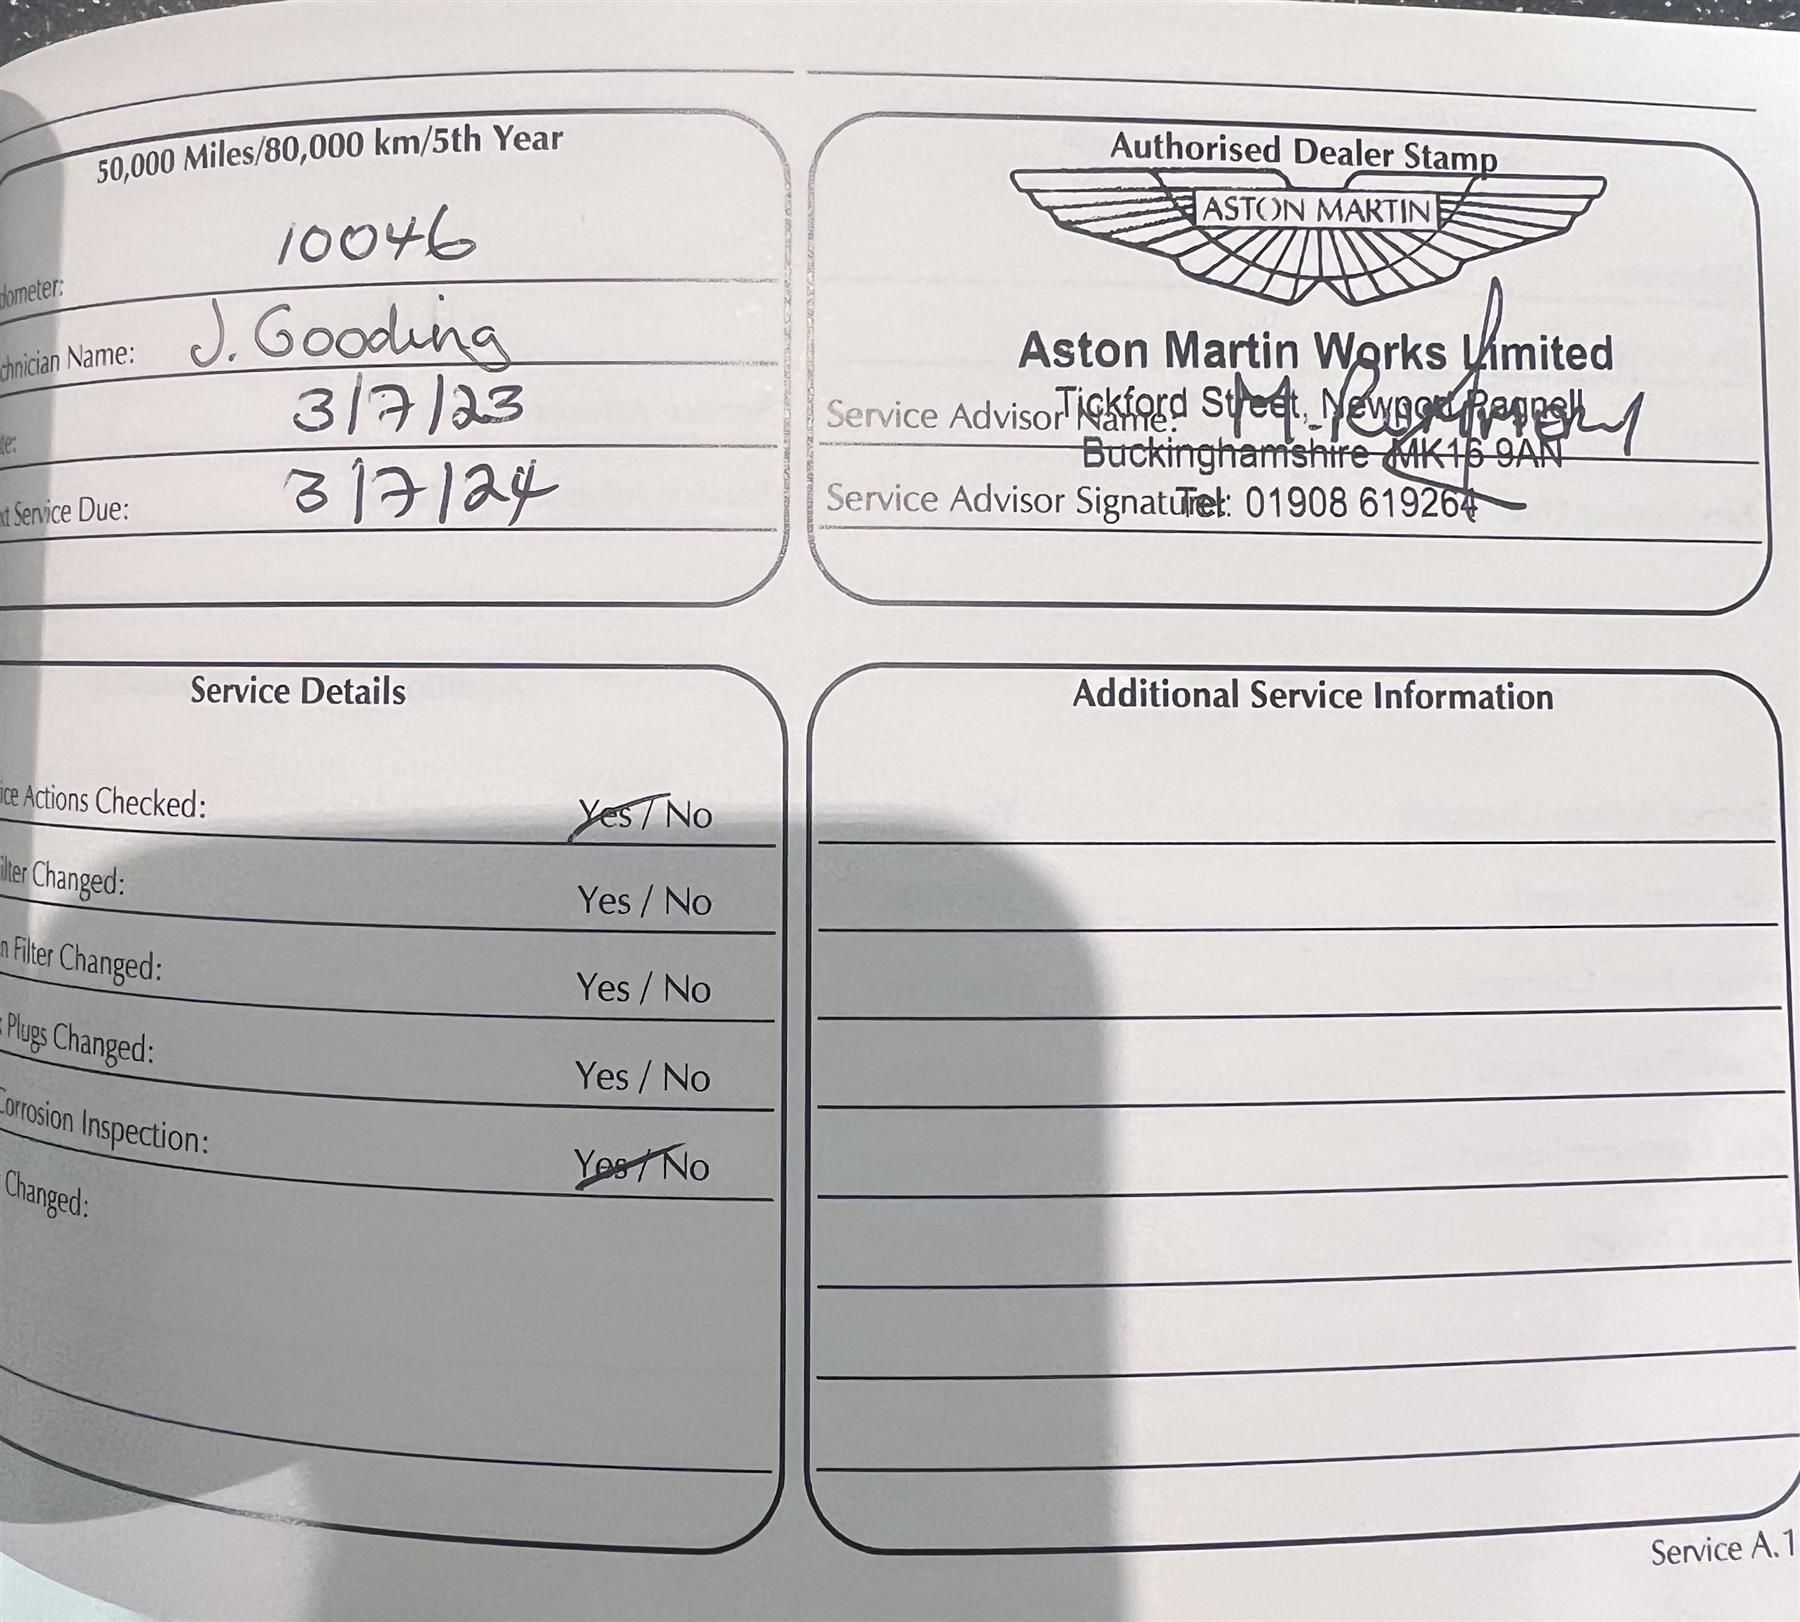 50,000 Miles/80,000 km/5th Year
10046
dometer:
chnician Name: J. Gooding
te: 3/7/23
xt Service Due: 3/7/24
Authorised Dealer Stamp
ASTON MARTIN
Aston Martin Works Limited
Tickford Street, Newport Pagnell
Service Advisor Name: M.
Buckinghamshire MK16 9AN
Service Advisor Signature:
Tel: 01908 619264
Service Details
ice Actions Checked: Yes / No
ilter Changed: Yes / No
n Filter Changed: Yes / No
Plugs Changed: Yes / No
Corrosion Inspection: Yes / No
Changed:
Additional Service Information
Service A.1